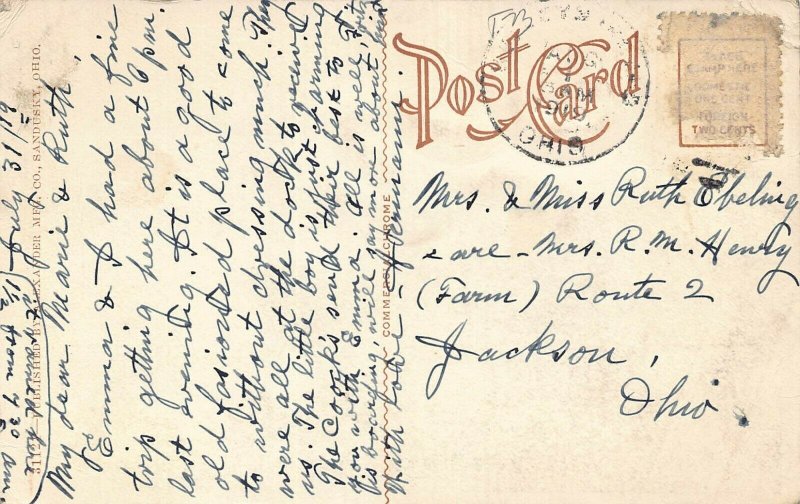 July 31/19
My dear Marie & Ruth,
Emma & I had a fine
trip getting here about 6 pm.
last evening. It is a good
old fashioned place to come
to without dressing much. They
were all at the dock to receive
us. The little boy is just charming
The Cook's send their best to
you with Emma. All is well,
is boarding, will say more about
With love - Hermann.
31174 PUBLISHED BY ALEXANDER MFG. CO., SANDUSKY, OHIO.
COMMERCIALCHROME
Post Card
OHIO
PLACE
STAMP HERE
DOMESTIC
ONE CENT
FOREIGN
TWO CENTS
Mrs. & Miss Ruth Ebeling
care - Mrs. R. M. Henry
(Farm) Route 2
Jackson,
Ohio.